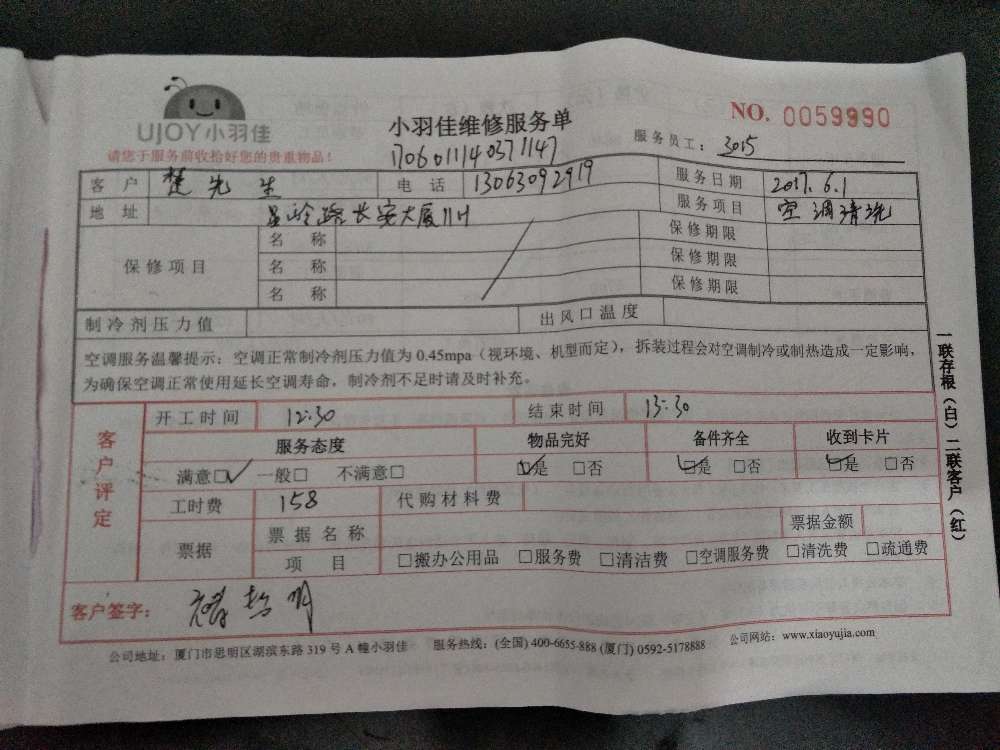 UJOY小羽佳
请您于服务前收拾好您的贵重物品！
小羽佳维修服务单
NO. 0059990
1706011140371147
服务员工： 3015
客户 楚先生 电话 13063092919 服务日期 2017.6.1
地址 路长安大厦 服务项目 空调清洗
保修项目 名称 保修期限
名称 保修期限
名称 保修期限
制冷剂压力值 出风口温度
空调服务温馨提示：空调正常制冷剂压力值为 0.45mpa（视环境、机型而定），拆装过程会对空调制冷或制热造成一定影响，
为确保空调正常使用延长空调寿命，制冷剂不足时请及时补充。
客户评定
开工时间 12:30 结束时间 13:30
服务态度 物品完好 备件齐全 收到卡片
满意□✓ 一般□ 不满意□ □是 □否 □是 □否 □是 □否
工时费 158 代购材料费
票据 票据名称 票据金额
项目 □搬办公用品 □服务费 □清洁费 □空调服务费 □清洗费 □疏通费
客户签字：
公司地址：厦门市思明区湖滨东路 319 号 A 幢小羽佳 服务热线：(全国) 400-6655-888 (厦门) 0592-5178888 公司网站：www.xiaoyujia.com
一联存根（白）二联客户（红）